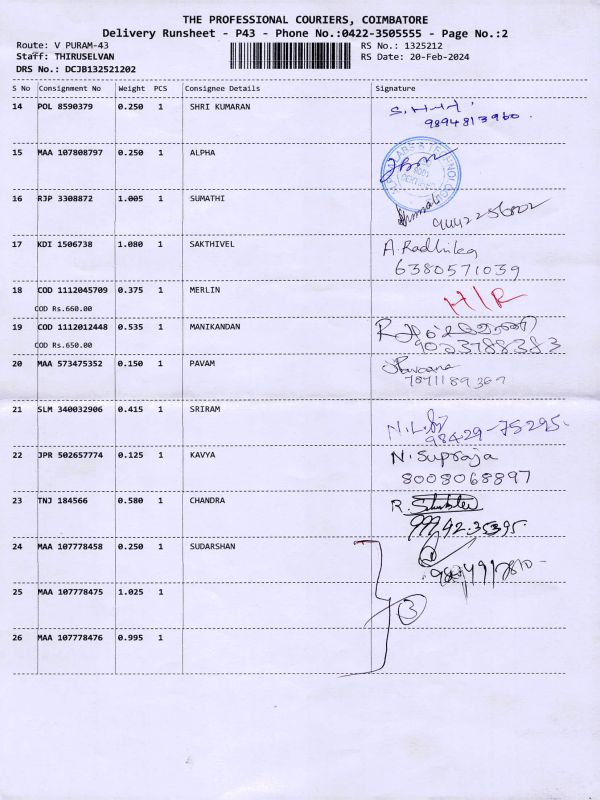 THE PROFESSIONAL COURIERS, COIMBATORE
Delivery Runsheet - P43 - Phone No.:0422-3505555 - Page No.:2
Route: V PURAM-43 RS No.: 1325212
Staff: THIRUSELVAN RS Date: 20-Feb-2024
DRS No.: DCJB132521202
S No Consignment No Weight PCS Consignee Details Signature
14 POL 8590379 0.250 1 SHRI KUMARAN
9894813960
15 MAA 107808797 0.250 1 ALPHA
16 RJP 3308872 1.005 1 SUMATHI
17 KDI 1506738 1.080 1 SAKTHIVEL A. Radhika
6380571039
18 COD 1112045709 0.375 1 MERLIN H/R
COD Rs.660.00
19 COD 1112012448 0.535 1 MANIKANDAN
COD Rs.650.00 9023788383
20 MAA 573475352 0.150 1 PAVAM
21 SLM 340032906 0.415 1 SRIRAM
98429-75295
22 JPR 502657774 0.125 1 KAVYA N. Supraja
8008068897
23 TNJ 184566 0.580 1 CHANDRA R.
24 MAA 107778458 0.250 1 SUDARSHAN
25 MAA 107778475 1.025 1
3
26 MAA 107778476 0.995 1